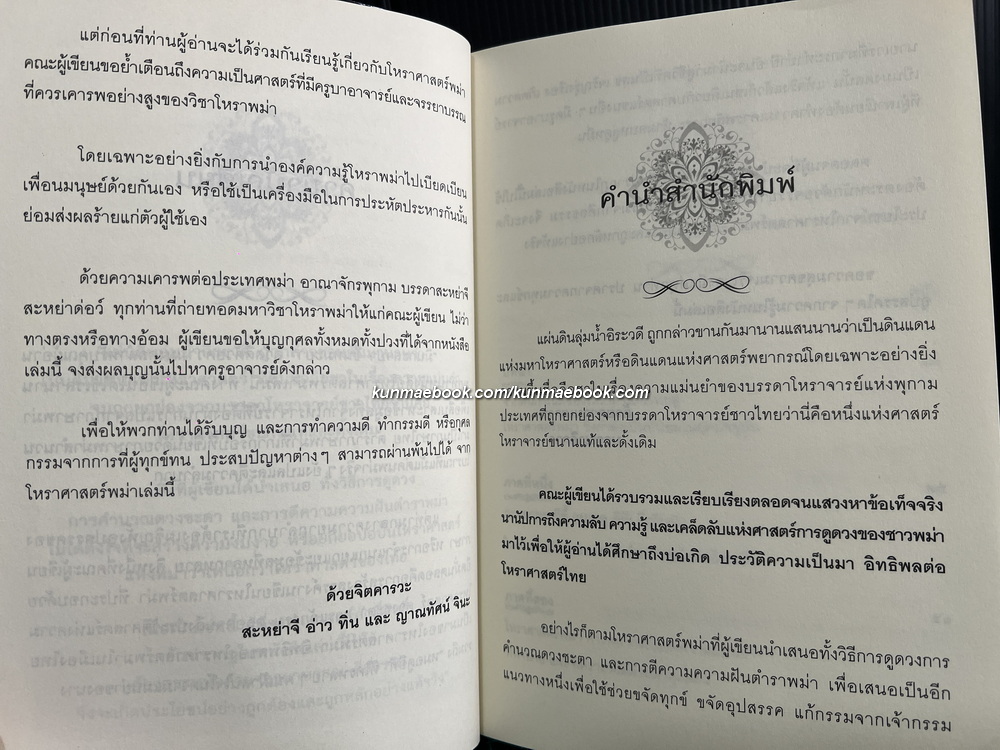 แต่ก่อนที่ท่านผู้อ่านจะได้ร่วมกันเรียนรู้เกี่ยวกับโหราศาสตร์พม่า
คณะผู้เขียนขอย้ำเตือนถึงความเป็นศาสตร์ที่มีครูบาอาจารย์และจรรยาบรรณ
ที่ควรเคารพอย่างสูงของวิชาโหราพม่า
โดยเฉพาะอย่างยิ่งกับการนำองค์ความรู้โหราพม่าไปเบียดเบียน
เพื่อนมนุษย์ด้วยกันเอง หรือใช้เป็นเครื่องมือในการประหัตประหารกันนั้น
ย่อมส่งผลร้ายแก่ตัวผู้ใช้เอง
ด้วยความเคารพต่อประเทศพม่า อาณาจักรพุกาม บรรดาสะหย่าจี
สะหย่าต่อว์ ทุกท่านที่ถ่ายทอดมหาวิชาโหราพม่าให้แก่คณะผู้เขียน ไม่ว่า
ทางตรงหรือทางอ้อม ผู้เขียนขอให้บุญกุศลทั้งหมดทั้งปวงที่ได้จากหนังสือ
เล่มนี้ จงส่งผลบุญนั้นไปหาครูอาจารย์ดังกล่าว
เพื่อให้พวกท่านได้รับบุญ และการทำความดี ทำกรรมดี หรือกุศล
กรรมจากการที่ผู้ทุกข์ทน ประสบปัญหาต่างๆ สามารถผ่านพ้นไปได้ จาก
โหราศาสตร์พม่าเล่มนี้
ด้วยจิตคารวะ
สะหย่าจี อ่าว ทิ่น และ ญาณทัศน์ จินะ
คำนำสำนักพิมพ์
แผ่นดินลุ่มน้ำอิระวดี ถูกกล่าวขานกันมานานแสนนานว่าเป็นดินแดน
แห่งมหาโหราศาสตร์หรือดินแดนแห่งศาสตร์พยากรณ์โดยเฉพาะอย่างยิ่ง
ความแม่นยำของบรรดาโหราจารย์แห่งพุกาม
kunmaebook.com/kunmaebook.com
ประเทศที่ถูกยกย่องจากบรรดาโหราจารย์ชาวไทยว่านี่คือหนึ่งแห่งศาสตร์
โหราจารย์ขนานแท้และดั้งเดิม
คณะผู้เขียนได้รวบรวมและเรียบเรียงตลอดจนแสวงหาข้อเท็จจริง
นานัปการถึงความลับ ความรู้ และเคล็ดลับแห่งศาสตร์การดูดวงของชาวพม่า
มาไว้เพื่อให้ผู้อ่านได้ศึกษาถึงบ่อเกิด ประวัติความเป็นมา อิทธิพลต่อ
โหราศาสตร์ไทย
อย่างไรก็ตามโหราศาสตร์พม่าที่ผู้เขียนนำเสนอทั้งวิธีการดูดวงการ
คำนวณดวงชะตา และการตีความความฝันตำราพม่า เพื่อเสนอเป็นอีก
แนวทางหนึ่งเพื่อใช้ช่วยขจัดทุกข์ ขจัดอุปสรรค แก้กรรมจากเจ้ากรรม